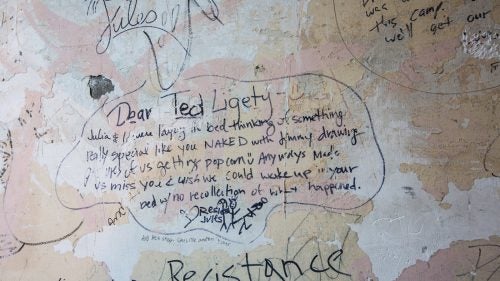 Jules
was
this camp.
we'll get our
Dear Ted Ligety
Julia & I were laying in bed thinking of something
really special like you NAKED with funny drawings
of us getting popcorn Anyways Made
us miss you & wish we could wake up in your
bed w/ no recollection of what happened.
Resistance